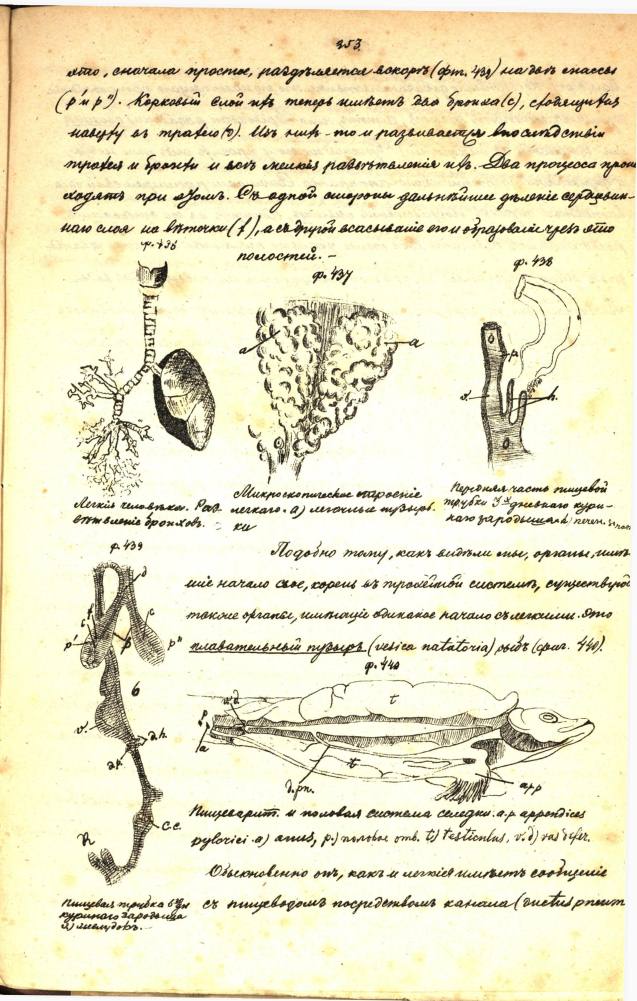 353
это, сначала простое, раздѣляется вскорѣ (фиг. 439) на двѣ массы
(p' и p''). Корковый слой ихъ теперь имѣетъ два бронха (c), сходящихся
наверху въ трахею (d). Изъ нихъ-то и развиваются впослѣдствіи
трахея и бронхи и всѣ мелкія развѣтвленія ихъ. Два процесса прои
ходятъ при этомъ. Съ одной стороны дальнѣйшее дѣленіе сердцевин-
наго слоя на вѣточки (f), а съ другой всасываніе его и образованіе чрезъ это
полостей. —
ф. 436
ф. 437
ф. 438
a
a
p.
v.
h.
Легкія человѣка. Раз
вѣтвленіе бронховъ.
Микроскопическое строеніе
легкаго. a) легочные пузырь
ки
Передняя часть пищевой
трубки 3-х дневнаго кури-
наго зародыша h) печен.
ф. 439
Подобно тому, какъ видѣли мы, органы, имѣ
шіе начало свое, корень въ трахейной системѣ, существую
такіе органы, имѣющіе одинакое начало съ легкими. Это
плавательный пузырь (vesica natatoria) рыбъ (фиг. 440).
d
c
f
c
p'
p
p''
б
v.
d.h.
d.p.
c.c.
R
ф. 440
v.d
t
p
a
t
d.pn.
a.p.p
Пищеварит. и половая система селедки. a.p appendices
pylorici a) anus, p.) половое отв. t) testiculus, v.d) vas defer.
Обыкновенно онъ, какъ и легкія имѣетъ сообщеніе
съ пищеводомъ посредствомъ канала (ductus pneum
Пищевая трубка 6 дн
куринаго зародыша
v) желудокъ. —